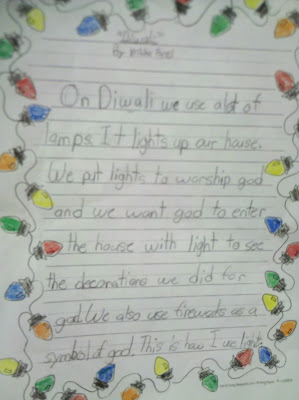 "Diwali"
By
On Diwali we use alot of
lamps. It lights up our house.
We put lights to worship god
and we want god to enter
the house with light to see
the decorations we did for
god. We also use fireworks as a
symbol of god. This is how I use light.